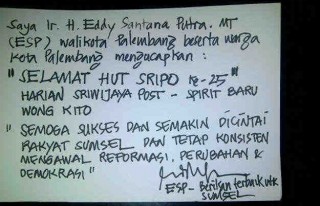 Saya Ir. H. Eddy Santana Putra. MT
(ESP) walikota Palembang beserta warga
kota Palembang mengucapkan :
"SELAMAT HUT SRIPO ke-25"
HARIAN SRIWIJAYA POST - SPIRIT BARU
WONG KITO
"SEMOGA SUKSES DAN SEMAKIN DICINTAI
RAKYAT SUMSEL DAN TETAP KONSISTEN
MENGAWAL REFORMASI, PERUBAHAN &
DEMOKRASI"
ESP - Berikan terbaik utk
SUMSEL